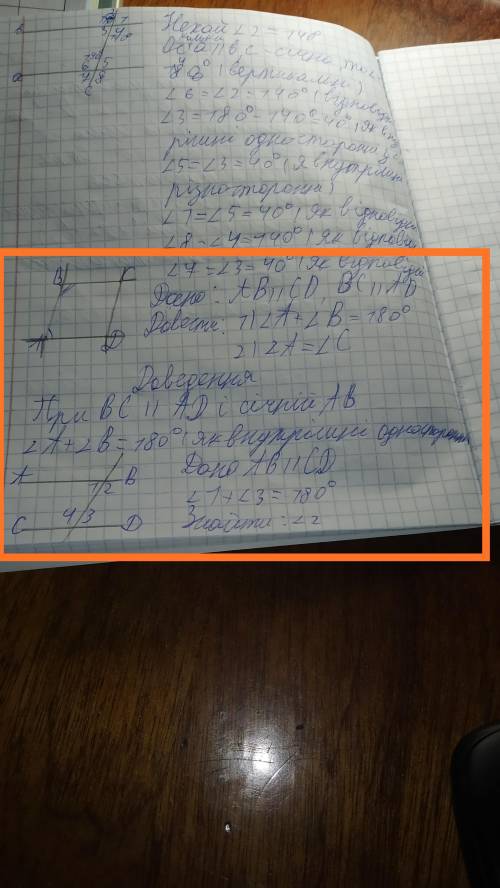 в
а
с
Нехай ∠2 = 140°
(вертикальні)
∠6 = ∠2 = 140° (відповідні
∠3 = 180° - 140° = 40° (як вн
рішні односторонні
∠5 = ∠3 = 40° (як внутрішні
різносторонні)
∠1 = ∠5 = 40° (як відповідні
∠8 = ∠4 = 140° (як відповід
∠7 = ∠3 = 40° (як відповідні
B C
A D
Дано: AB || CD, BC || AD
Довести: 1) ∠A + ∠B = 180°
2) ∠A = ∠C
Доведення
При BC || AD і січній AB
∠A + ∠B = 180° (як внутрішні односторонні
A B
1 2
4 3
C D
Дано AB || CD
∠1 + ∠3 = 180°
Знайти: ∠2